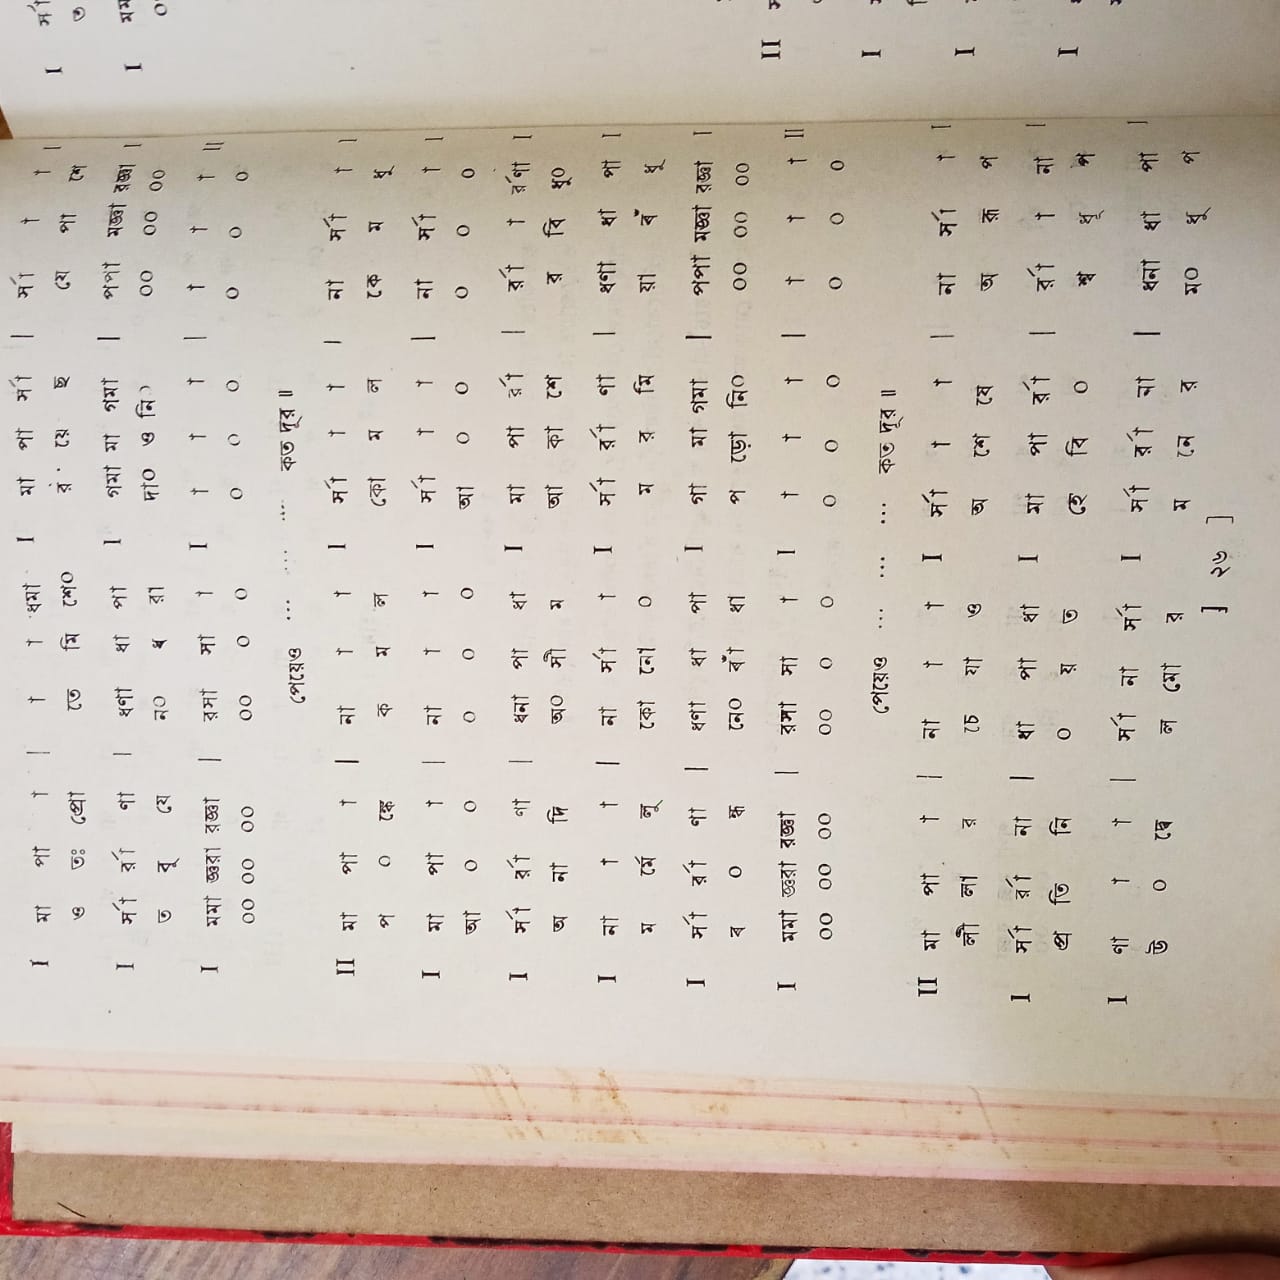 I মা পা া | া া ধমা I মা পা র্সা | র্সা া া |
ও তঃ প্রো তে মি শে০ রং য়ে ছ যে পা শে
I র্সা র্রা ণা | ধণা ধা পা I গমা মা গমা | পপা মজ্ঞা রজ্ঞা |
ত বু যে ন০ ধ রা দা০ ও নি০ ০০ ০০ ০০
I মমা জ্ঞরা রজ্ঞা | রসা সা া I া া া | া া া II
০০ ০০ ০০ ০০ ০ ০ ০ ০ ০ ০ ০ ০
পেয়েও ... ... ... কত দূর ॥
II মা পা া | না া া I র্সা া া | না র্সা া |
প ০ ঙ্কে ক ম ল কো ম ল কে ম ধু
I মা পা া | না া া I র্সা া া | না র্সা া |
আ ০ ০ ০ ০ ০ আ ০ ০ ০ ০ ০
I র্সা র্রা ণা | ধনা পা ধা I মা পা র্রা | র্রা া র্রণা |
অ না দি অ০ সী ম আ কা শে র বি ধু০
I না া া | না র্সা া I র্সা র্রা ণা | ধণা ধা পা |
ম র্মে লু কো নো ০ ম র মি য়া বঁ ধু
I র্সা র্রা ণা | ধণা ধা পা I গা মা গমা | পপা মজ্ঞা রজ্ঞা |
ব ০ ন্ধ নে০ বাঁ ধা প ড়ো নি০ ০০ ০০ ০০
I মমা জ্ঞরা রজ্ঞা | রসা সা া I া া া | া া া II
০০ ০০ ০০ ০০ ০ ০ ০ ০ ০ ০ ০ ০
পেয়েও ... ... ... কত দূর ॥
II মা পা া | না া া I র্সা া া | না র্সা া |
লী লা র চে য়া ও অ শে ষে অ রূ প
I র্সা র্রা না | ধা পা ধা I মা পা র্রা | র্রা া না |
প্র তি নি ০ য় ত হে বি ০ শ্ব ধূ প
I ণা া া | র্সা না র্সা I র্সা র্রা না | ধনা ধা পা |
উ ০ দ্বে ল মো র ম নে র ম০ ধু প
[ ২৬ ]